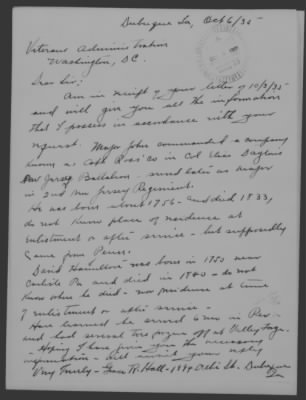 Dubuque Ia, Oct 6/35
Veterans Administration
Washington, D.C.
Dear Sir;
Am in receipt of your letter of 10/3/35
and will give you all the information
that I possess in accordance with your
request. Major John commanded a company
known as Capt Ross' Co in Col Elias Dayton's
New Jersey Battalion - served later as major
in 2nd New Jersey Regiment.
He was born about 1756 - and died 1833,
do not know place of residence at
enlistment or after service - but supposedly
came from Penn.
David Hamilton was born in 1750 near
Carlisle Pa and died in 1840 - do not
know where he died - nor residence at time
of enlistment or after service -
Have learned he served in Rev -
and had several toes frozen off at Valley Forge.
- Hoping I have given you the necessary
information - Will await your reply
Very Truly - R. Hall - 1894 St. Dubuque
Ia